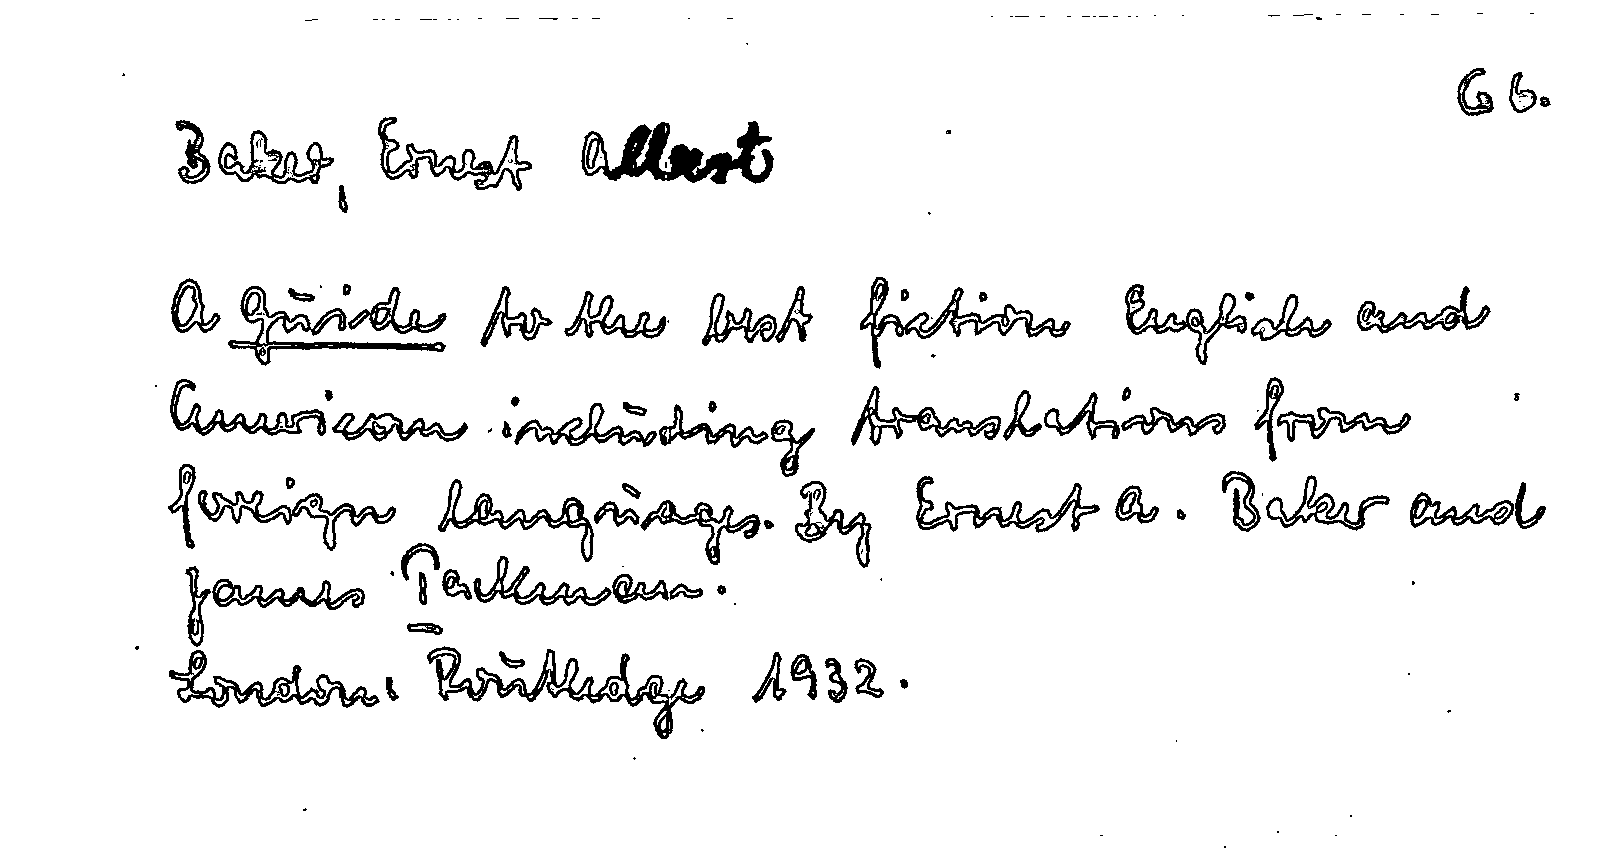 G 6.
Baker, Ernest Albert
A Guide to the best fiction English and
American including translations from
foreign languages. By Ernest A. Baker and
James Packman.
London: Routledge 1932.